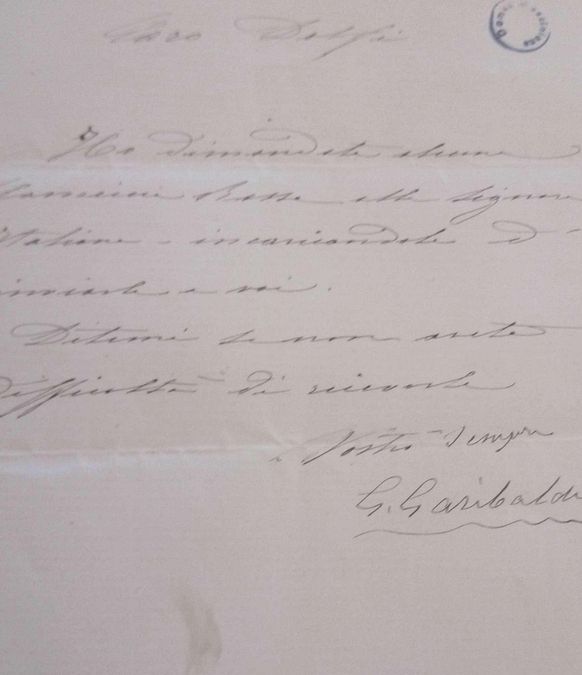 Caro Dolfi
Ho dimandate alcune
Camicie Rosse alle Signore
italiane - incaricandole d'
inviarle a voi.
Ditemi se non avete
difficoltà di riceverle
Vostro sempre
G. Garibaldi